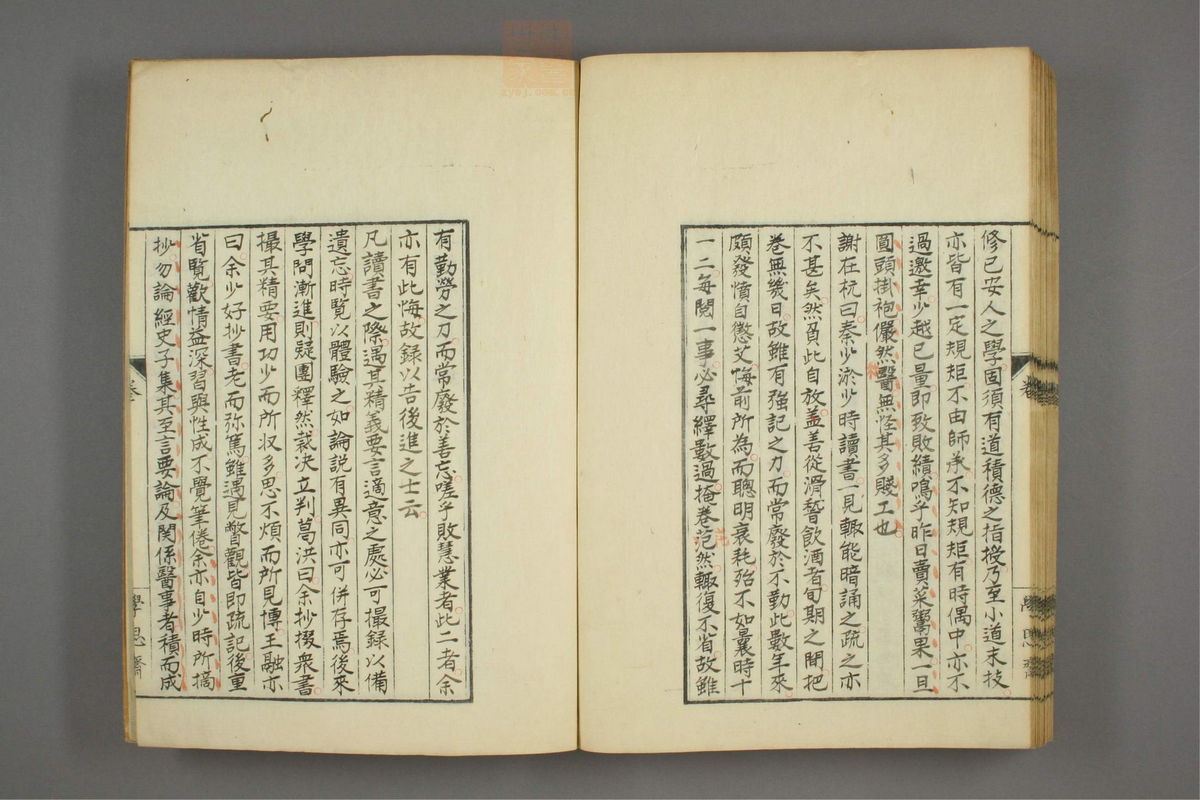 修己安人之學固須有道積德之指授乃至小道末技
亦皆有一定規矩不由師承不知規矩有時偶中亦不
過邀幸少越己量即致敗績嗚乎昨日賣菜鬻果一旦
圓頭掛袍儼然醫無怪其多賤工也
謝在杭曰秦少游少時讀書一見輒能暗誦之疏之亦
不甚矣然負此自放盖善從滑稽飲酒者旬期之間把
卷無幾日故雖有強記之力而常廢於不勤此數年來
頗發憤自懲艾悔前所為而聰明衰耗殆不如曩時十
一二每閱一事必尋繹數過掩卷范然輒復不省故雖
有勤勞之力而常廢於善忘嗟乎敗慧業者此二者余
亦有此悔故録以告後進之士云
凡讀書之際遇其精義要言適意之處必可撮録以備
遺忘時覧以體驗之如論説有異同亦可併存焉後來
學問漸進則疑團釋然裁决立判葛洪曰余抄掇衆書
撮其精要用功少而所収多思不煩而所見博王融亦
曰余少好抄書老而弥篤雖遇見瞥觀皆即疏記後重
省覧歡情益深習與性成不覺筆倦余亦自少時所摘
抄勿論經史子集其至言要論及関係醫事者積而成
學思齋